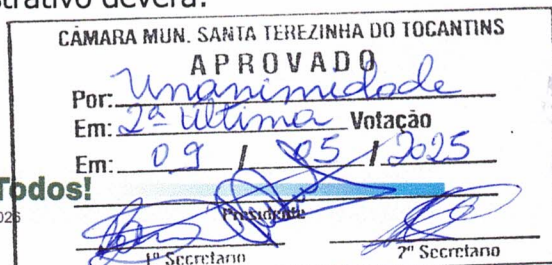 strativo deverá:
CÂMARA MUN. SANTA TEREZINHA DO TOCANTINS
APROVADO
Por: Unanimidade
Em: 2ª última Votação
Em: 09 / 05 / 2025
Todos!
Presidente
1º Secretario
2º Secretario